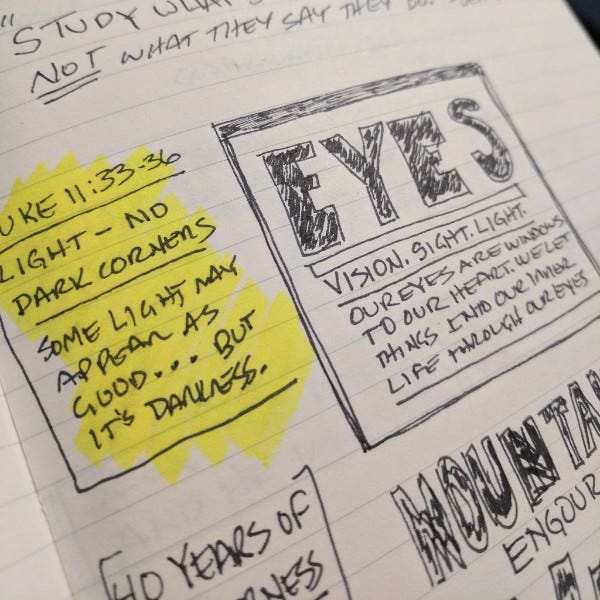 " STUDY WHAT
NOT WHAT THEY SAY THEY DO.
UKE 11:33-36
LIGHT – NO
DARK CORNERS
SOME LIGHT MAY
APPEAR AS
GOOD... BUT
IT'S DARKNESS.
EYES
VISION. SIGHT. LIGHT.
OUR EYES ARE WINDOWS
TO OUR HEART. WE LET
THINGS INTO OUR INNER
LIFE THROUGH OUR EYES
MOUNTA
ENGOUR
40 YEARS OF
RNESS